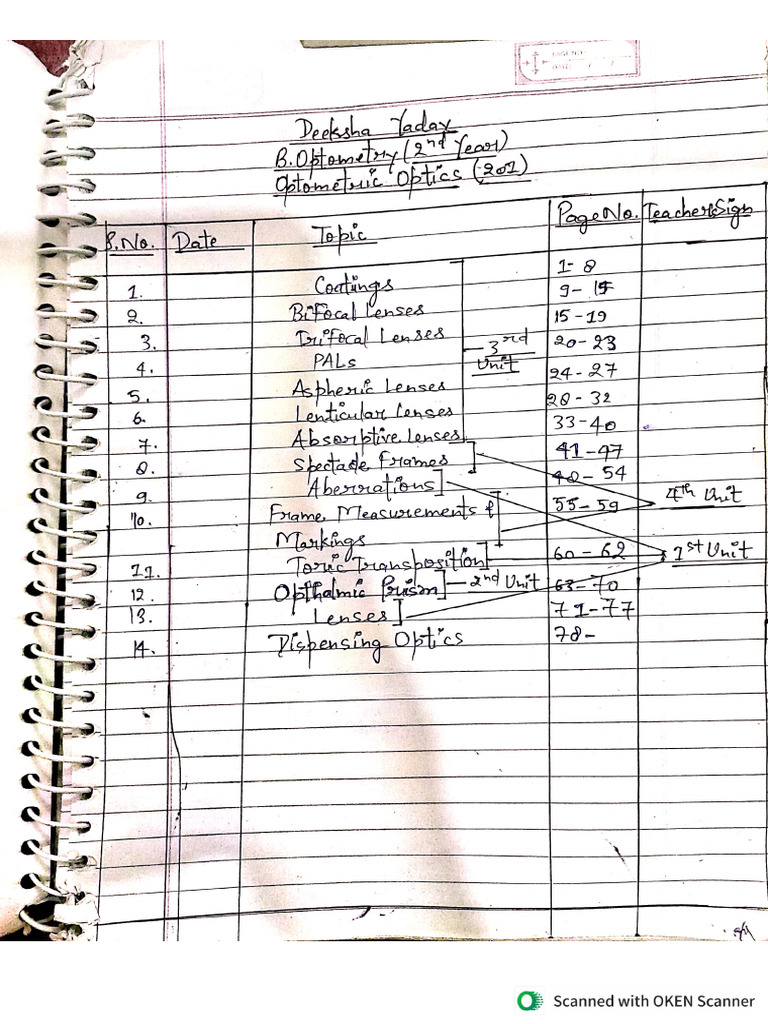 Deeksha Yadav
B.Optometry (2nd Year)
Optometric Optics (201)
S.No. Date Topic Page No. Teacher Sign
1. Coatings 1-8
2. Bifocal Lenses 9-15
3. Trifocal Lenses 15-19
4. PALs 20-23
3rd Unit
5. Aspheric Lenses 24-27
6. Lenticular Lenses 28-32
7. Absorptive Lenses 33-40
8. Spectacle Frames 41-47
9. Aberrations 48-54
10. Frame Measurements & 55-59 4th Unit
Markings
11. Toric Transposition 60-62 1st Unit
12. Opthalmic Prism 2nd Unit 63-70
13. Lenses 71-77
14. Dispensing Optics 78-
Scanned with OKEN Scanner